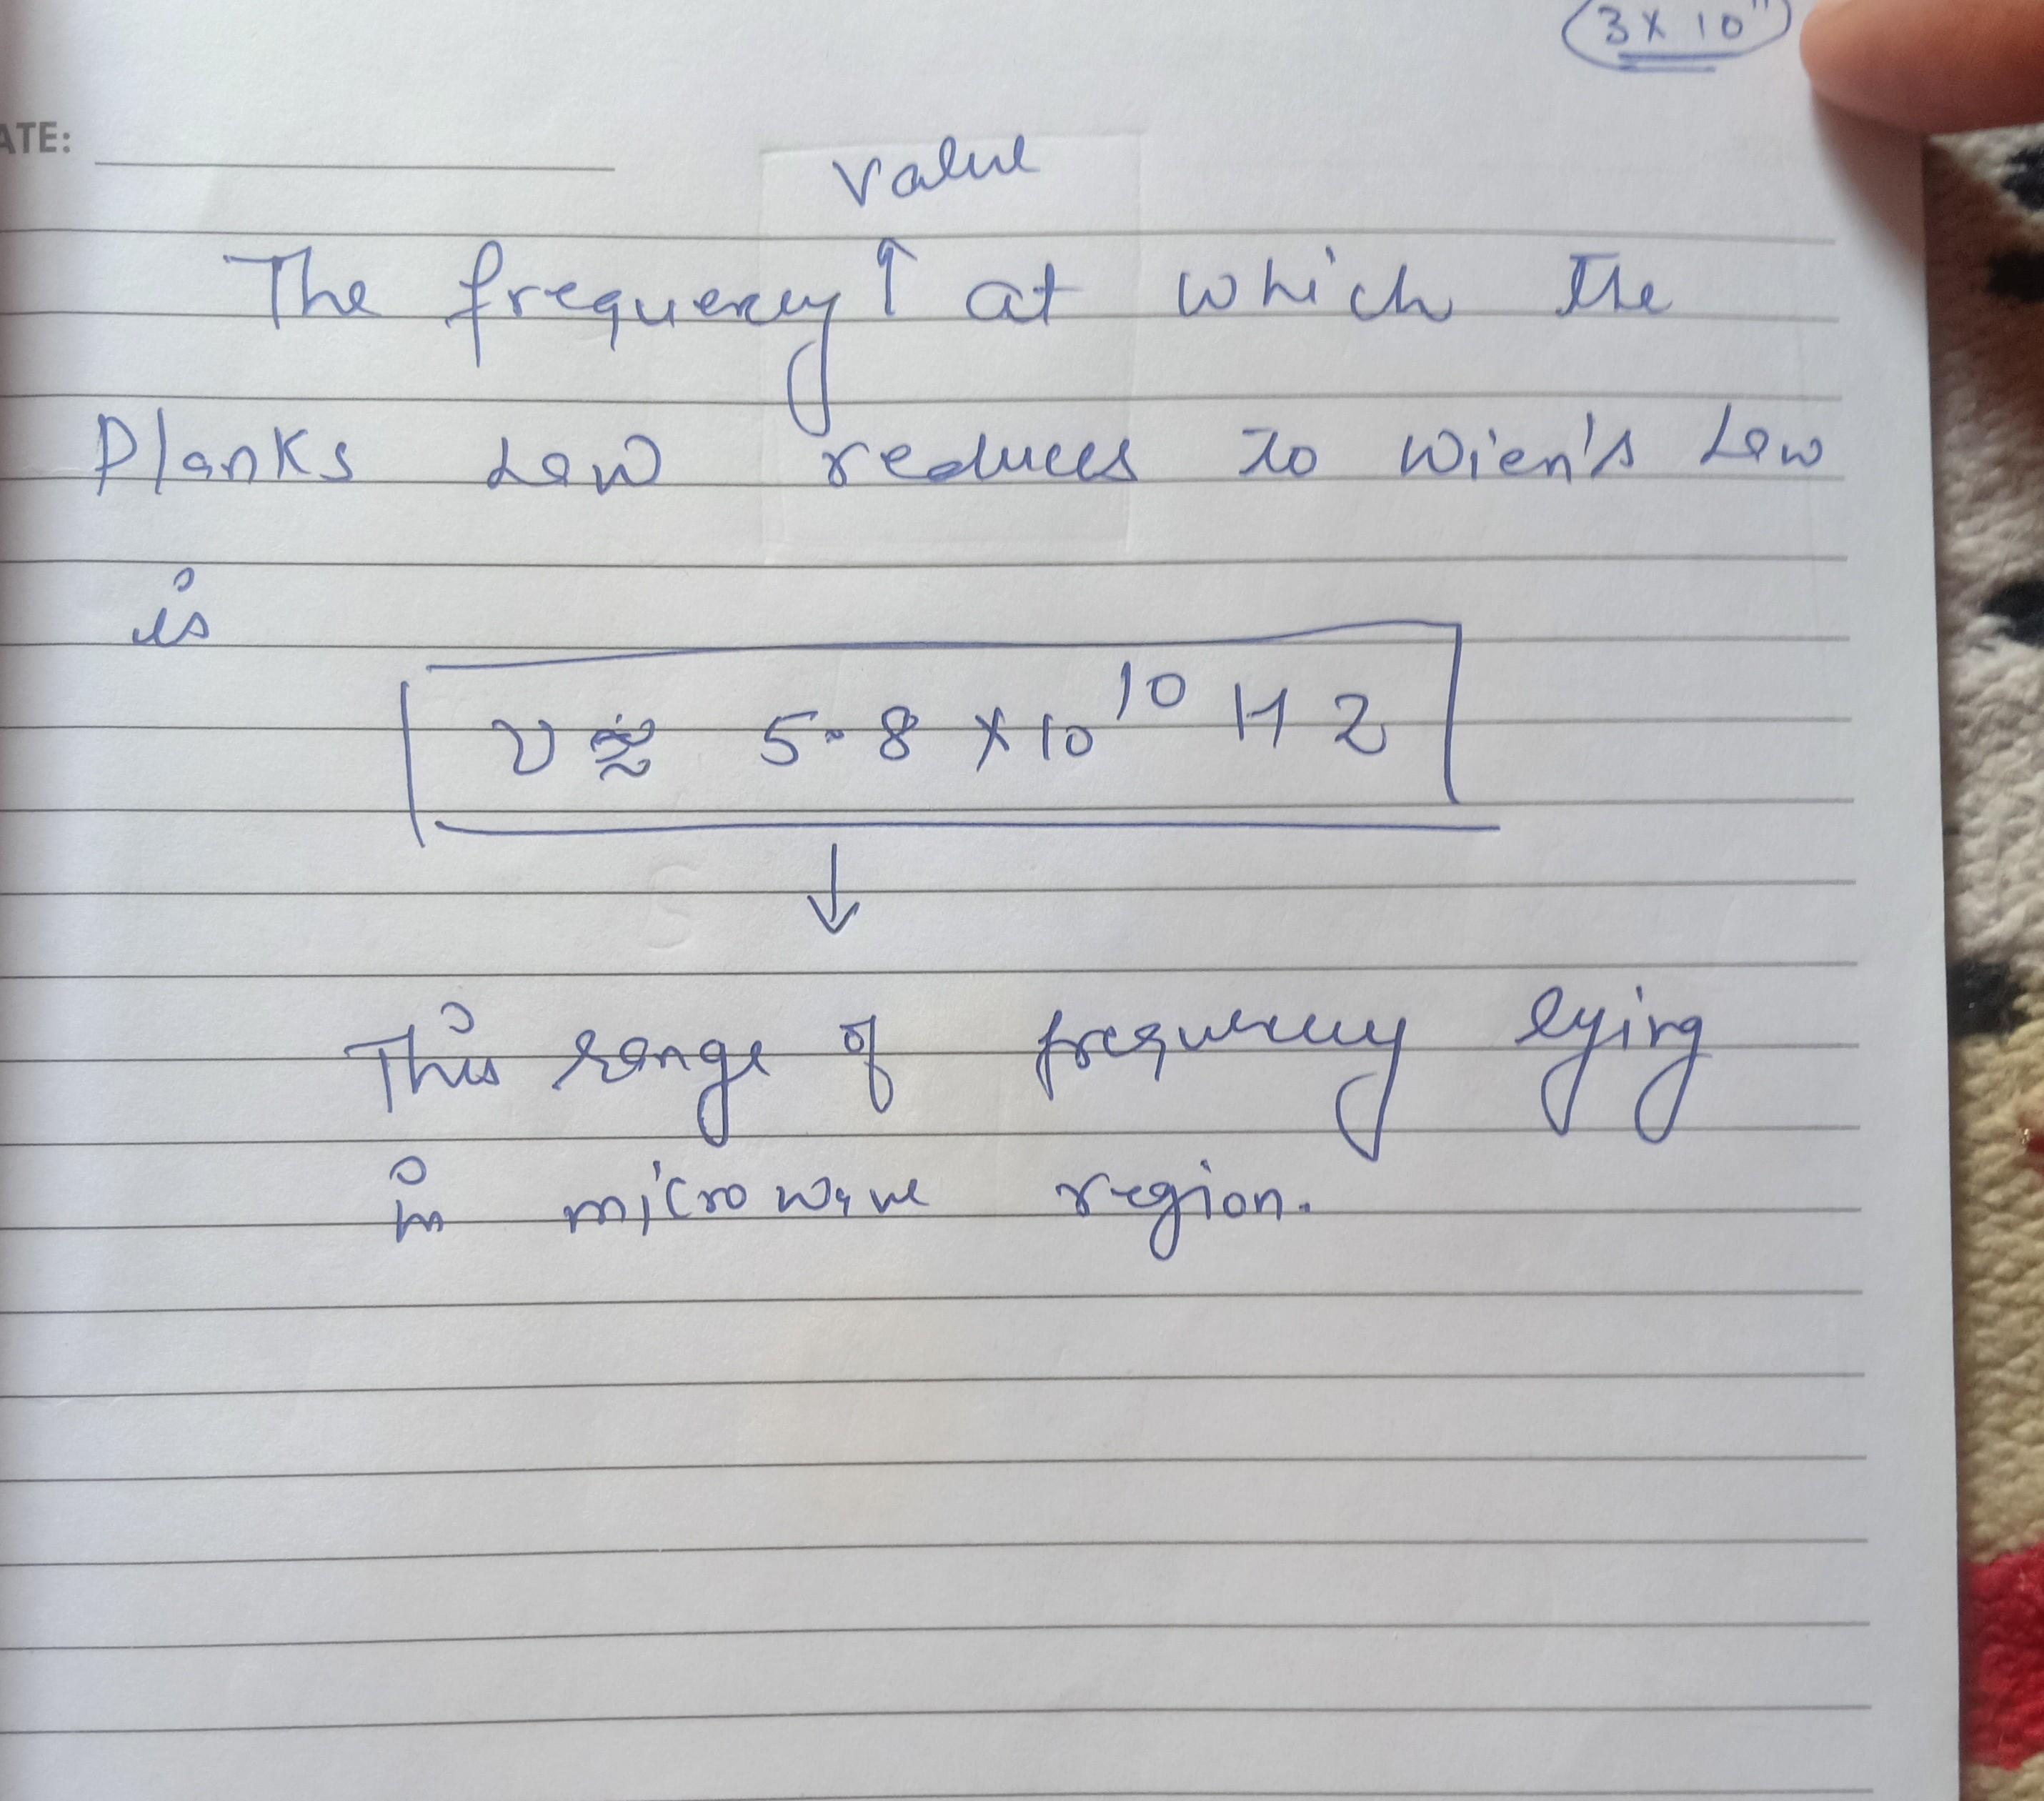 3 x 10"
ATE:
value
The frequency ↑ at which the
Planks Law reduces to Wien's Law
is
ν ≈ 5.8 × 10¹⁰ HZ
↓
This range of frequency lying
in microwave region.